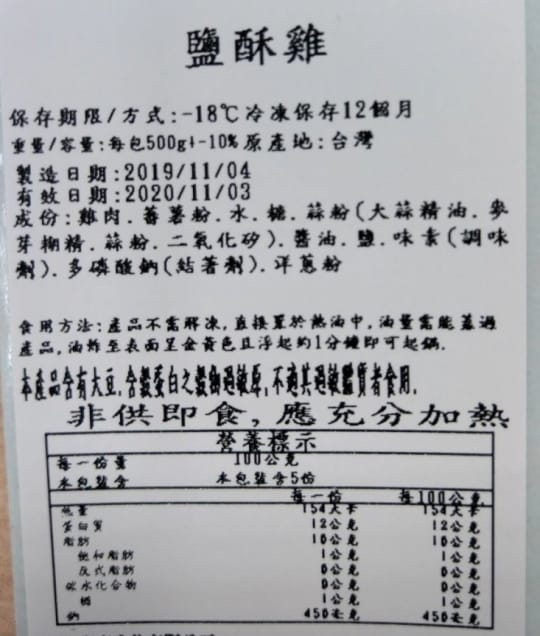 鹽酥雞
保存期限/方式:-18℃冷凍保存12個月
重量/容量:每包500g+-10%原產地:台灣
製造日期:2019/11/04
有效日期:2020/11/03
成份:雞肉.蕃薯粉.水.糖.蒜粉(大蒜精油.麥
芽糊精.蒜粉.二氧化矽).醬油.鹽.味素(調味
劑).多磷酸鈉(結著劑).洋蔥粉
食用方法:產品不需解凍,直接置於熱油中,油量需能蓋過
產品,油炸至表面呈金黃色且浮起約1分鐘即可起鍋.
本產品含有大豆.含麩蛋白之穀物過敏原,不適其過敏體質者食用.
非供即食,應充分加熱
營養標示
每一份量 100公克
本包裝含 本包裝含5份
每一份 每100公克
熱量 154大卡 154大卡
蛋白質 12公克 12公克
脂肪 10公克 10公克
飽和脂肪 1公克 1公克
反式脂肪 0公克 0公克
碳水化合物 0公克 0公克
糖 1公克 1公克
鈉 450毫克 450毫克